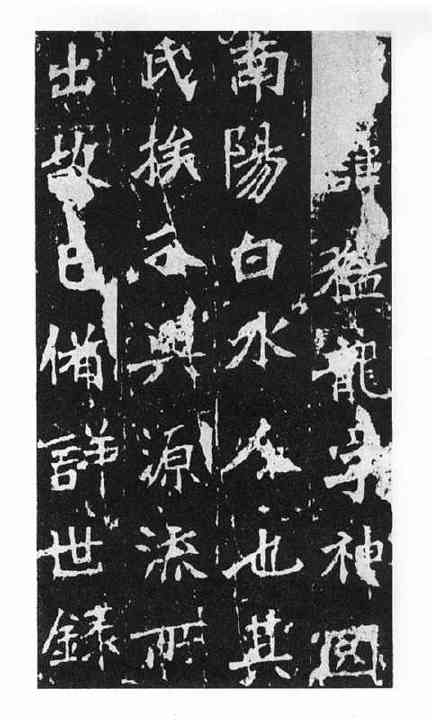 諱猛龍字神冏
南陽白水人也其
氏族分興源流所
出故已備詳世錄